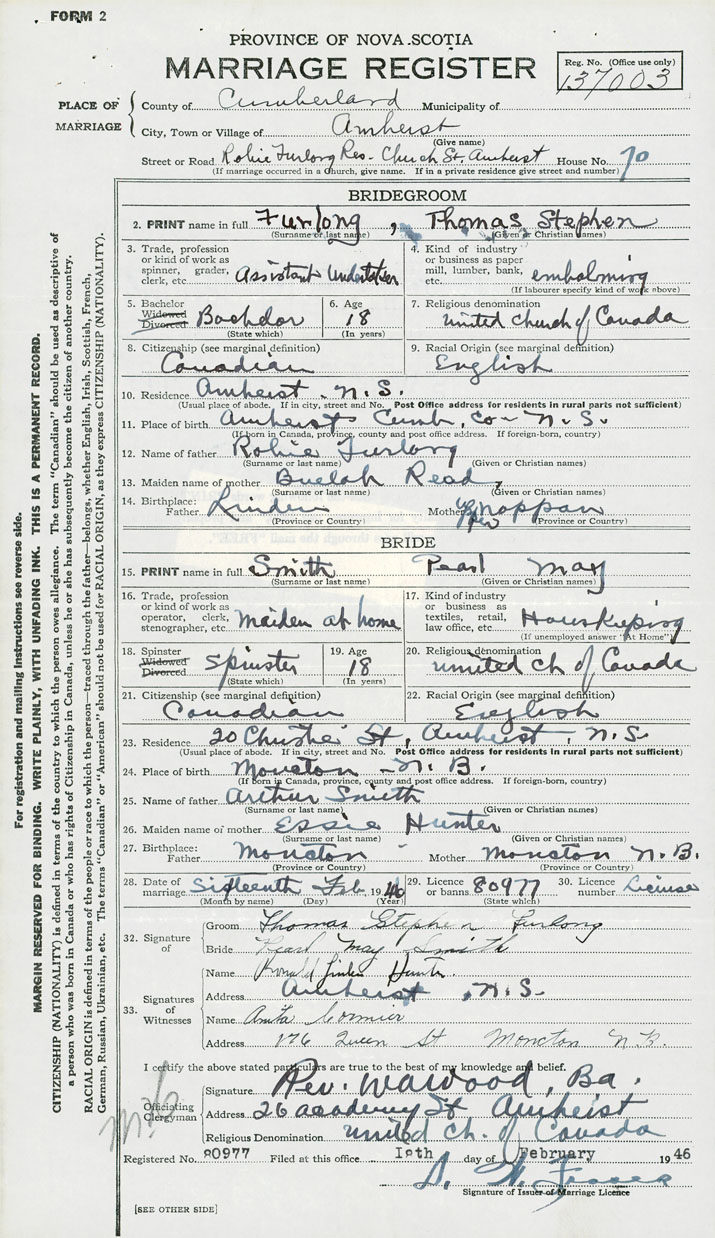 FORM 2
PROVINCE OF NOVA SCOTIA
MARRIAGE REGISTER
Reg. No. (Office use only)
137003
PLACE OF MARRIAGE
County of Cumberland Municipality of
City, Town or Village of Amherst
(Give name)
Street or Road Robie Furlong Res- Church St, Amherst House No. 70
(If marriage occurred in a Church, give name. If in a private residence give street and number)
BRIDEGROOM
2. PRINT name in full Furlong, Thomas Stephen
(Surname or last name) (Given or Christian names)
3. Trade, profession or kind of work as spinner, grader, clerk, etc. Assistant Undertaker
4. Kind of industry or business as paper mill, lumber, bank, etc. embalming
(If labourer specify kind of work above)
5. Bachelor Widowed Divorced Bachelor
(State which)
6. Age 18
(In years)
7. Religious denomination
united church of Canada
8. Citizenship (see marginal definition)
Canadian
9. Racial Origin (see marginal definition)
English
10. Residence Amherst. N.S.
(Usual place of abode. If in city, street and No. Post Office address for residents in rural parts not sufficient)
11. Place of birth Amherst Cumb. Co- N.S.
(If born in Canada, province, county and post office address. If foreign-born, country)
12. Name of father Robie Furlong
(Surname or last name) (Given or Christian names)
13. Maiden name of mother Buelah Read
(Surname or last name) (Given or Christian names)
14. Birthplace: Father Linden Mother Nappan
(Province or Country) (Province or Country)
BRIDE
15. PRINT name in full Smith Pearl May
(Surname or last name) (Given or Christian names)
16. Trade, profession or kind of work as operator, clerk, stenographer, etc. maiden at home
17. Kind of industry or business as textiles, retail, law office, etc. Houskeeping
(If unemployed answer "At Home")
18. Spinster Widowed Divorced Spinster
(State which)
19. Age 18
(In years)
20. Religious denomination
united ch. of Canada
21. Citizenship (see marginal definition)
Canadian
22. Racial Origin (see marginal definition)
English
23. Residence 20 Christie St, Amherst, N.S
(Usual place of abode. If in city, street and No. Post Office address for residents in rural parts not sufficient)
24. Place of birth Moncton - N.B.
(If born in Canada, province, county and post office address. If foreign-born, country)
25. Name of father Arthur Smith
(Surname or last name) (Given or Christian names)
26. Maiden name of mother Essie Hunter
(Surname or last name) (Given or Christian names)
27. Birthplace: Father Moncton Mother Moncton N.B.
(Province or Country) (Province or Country)
28. Date of marriage Feb 1946
(Month by name) (Day) (Year)
29. Licence or banns 80977
(State which)
30. Licence number License
32. Signature of
Groom Thomas Stephen Furlong
Bride Pearl May Smith
33. Signatures of Witnesses
Name Ronald Hunter
Address Amherst, N.S.
Name Anita Cormier
Address 176 Queen St Moncton N.B.
I certify the above stated particulars are true to the best of my knowledge and belief.
Officiating Clergyman
Signature Rev. WaWood, Ba.
Address 26 academy St Amherst
Religious Denomination united ch. of Canada
Registered No. 80977 Filed at this office 18th day of February 1946
Signature of Issuer of Marriage Licence
[SEE OTHER SIDE]
For registration and mailing instructions see reverse side.
MARGIN RESERVED FOR BINDING. WRITE PLAINLY, WITH UNFADING INK. THIS IS A PERMANENT RECORD.
CITIZENSHIP (NATIONALITY) is defined in terms of the country to which the person owes allegiance. The term "Canadian" should be used as descriptive of
a person who was born in Canada or who has rights of Citizenship in Canada, unless he or she has subsequently become the citizen of another country.
RACIAL ORIGIN is defined in terms of the people or race to which the person—traced through the father—belongs, whether English, Irish, Scottish, French,
German, Russian, Ukrainian, etc. The terms "Canadian" or "American" should not be used for RACIAL ORIGIN, as they express CITIZENSHIP (NATIONALITY).